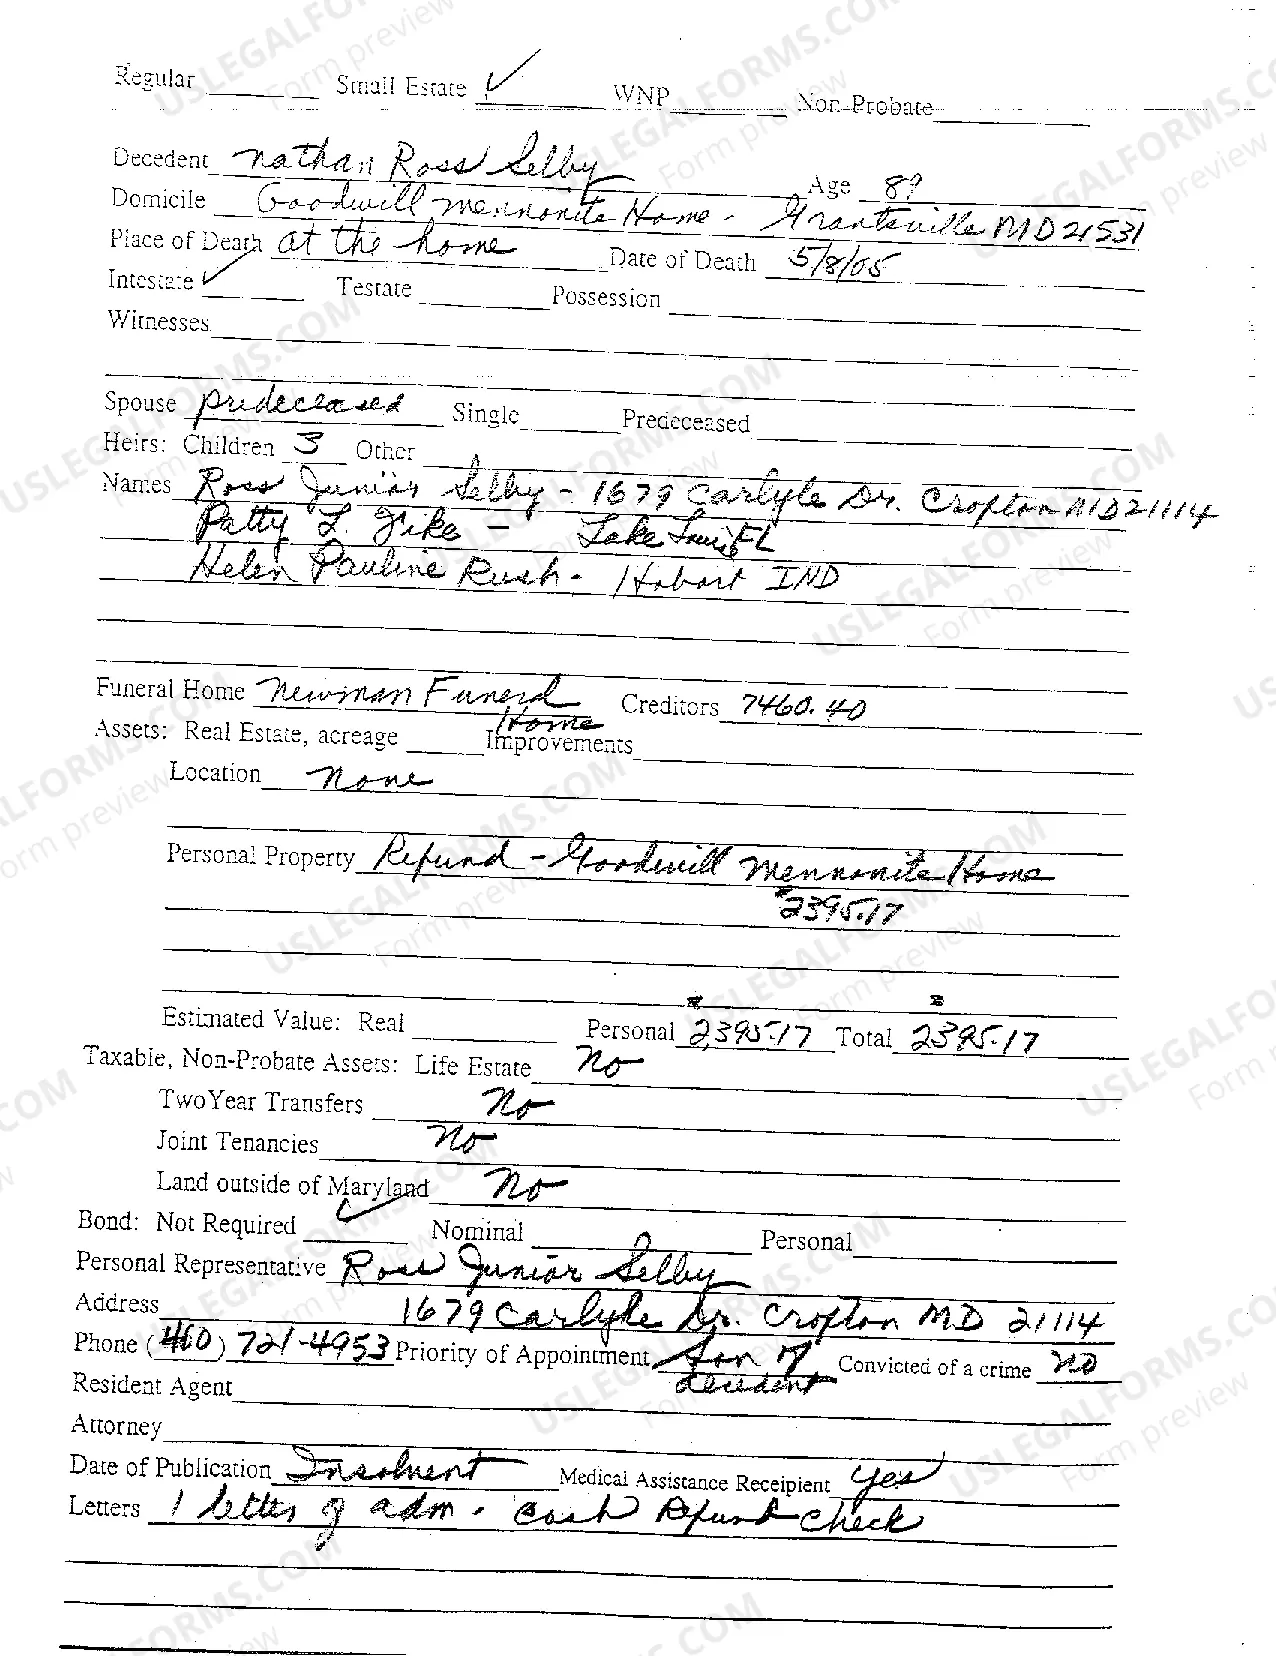 Regular Small Estate ✓ WNP Non-Probate
Decedent Nathan Ross Selby Age 89
Domicile Goodwill Mennonite Home - Grantsville MD 21531
Place of Death at the home Date of Death 5/8/05
Intestate ✓ Testate Possession
Witnesses
Spouse predeceased Single Predeceased
Heirs: Children 3 Other
Names Ross Junior Selby - 1679 Carlyle Dr. Crofton MD 21114
Patty L. - Lake FL
Helen Pauline Rush - Hobart IND
Funeral Home Newman Funeral Home Creditors 7460.40
Assets: Real Estate, acreage Improvements
Location None
Personal Property Refund - Goodwill Mennonite Home
2395.17
Estimated Value: Real Personal 2,395.17 Total 2395.17
Taxable, Non-Probate Assets: Life Estate No
Two Year Transfers No
Joint Tenancies No
Land outside of Maryland No
Bond: Not Required ✓ Nominal Personal
Personal Representative Ross Junior Selby
Address 1679 Carlyle Dr. Crofton MD 21114
Phone (410) 721-4953 Priority of Appointment Son of decedent Convicted of a crime NO
Resident Agent
Attorney
Date of Publication Insolvent Medical Assistance Receipient yes
Letters 1 letter of adm. cash Refund check
USLEGALFORMS.COM
Form preview